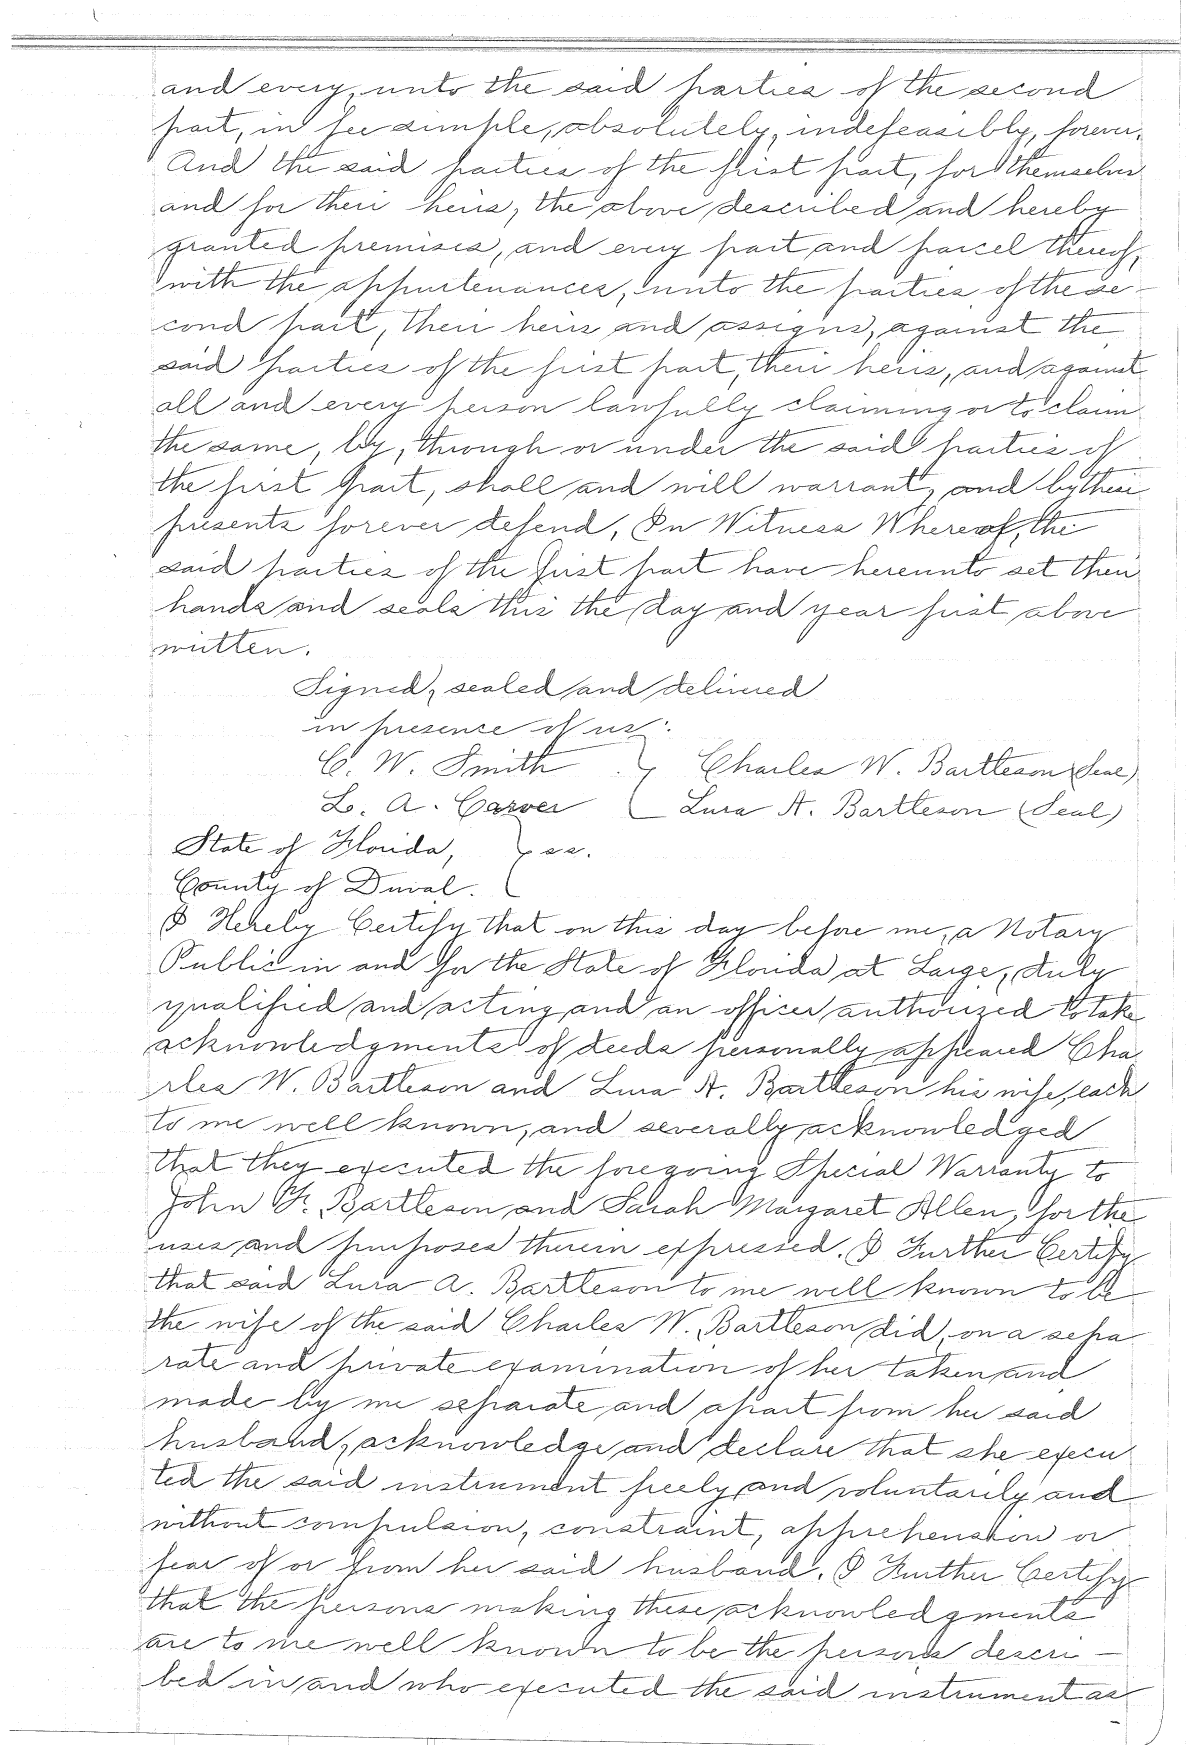 and every, unto the said parties of the second
part, in fee simple, absolutely, indefeasibly, forever.
And the said parties of the first part, for themselves
and for their heirs, the above described and hereby
granted premises, and every part and parcel thereof,
with the appurtenances, unto the parties of the se-
cond part, their heirs and assigns, against the
said parties of the first part, their heirs, and against
all and every person lawfully claiming or to claim
the same, by, through or under the said parties of
the first part, shall and will warrant, and by these
presents forever defend, In Witness Whereof, the
said parties of the first part have hereunto set their
hands and seals this the day and year first above
written.
Signed, sealed and delivered
in presence of us:
C. W. Smith Charles W. Bartleson (Seal)
L. A. Carver Lura A. Bartleson (Seal)
State of Florida, ss.
County of Duval.
I Hereby Certify that on this day before me, a Notary
Public in and for the State of Florida at Large, duly
qualified and acting and an officer authorized to take
acknowledgments of deeds personally appeared Cha
rles W. Bartleson and Lura A. Bartleson his wife, each
to me well known, and severally acknowledged
that they executed the foregoing Special Warranty to
John F. Bartleson and Sarah Margaret Allen, for the
uses and purposes therein expressed. I Further Certify
that said Lura A. Bartleson to me well known to be
the wife of the said Charles W. Bartleson did, on a sepa
rate and private examination of her taken and
made by me separate and apart from her said
husband, acknowledge and declare that she execu
ted the said instrument freely and voluntarily and
without compulsion, constraint, apprehension or
fear of or from her said husband. I Further Certify
that the persons making these acknowledgments
are to me well known to be the persons descri-
bed in and who executed the said instrument as